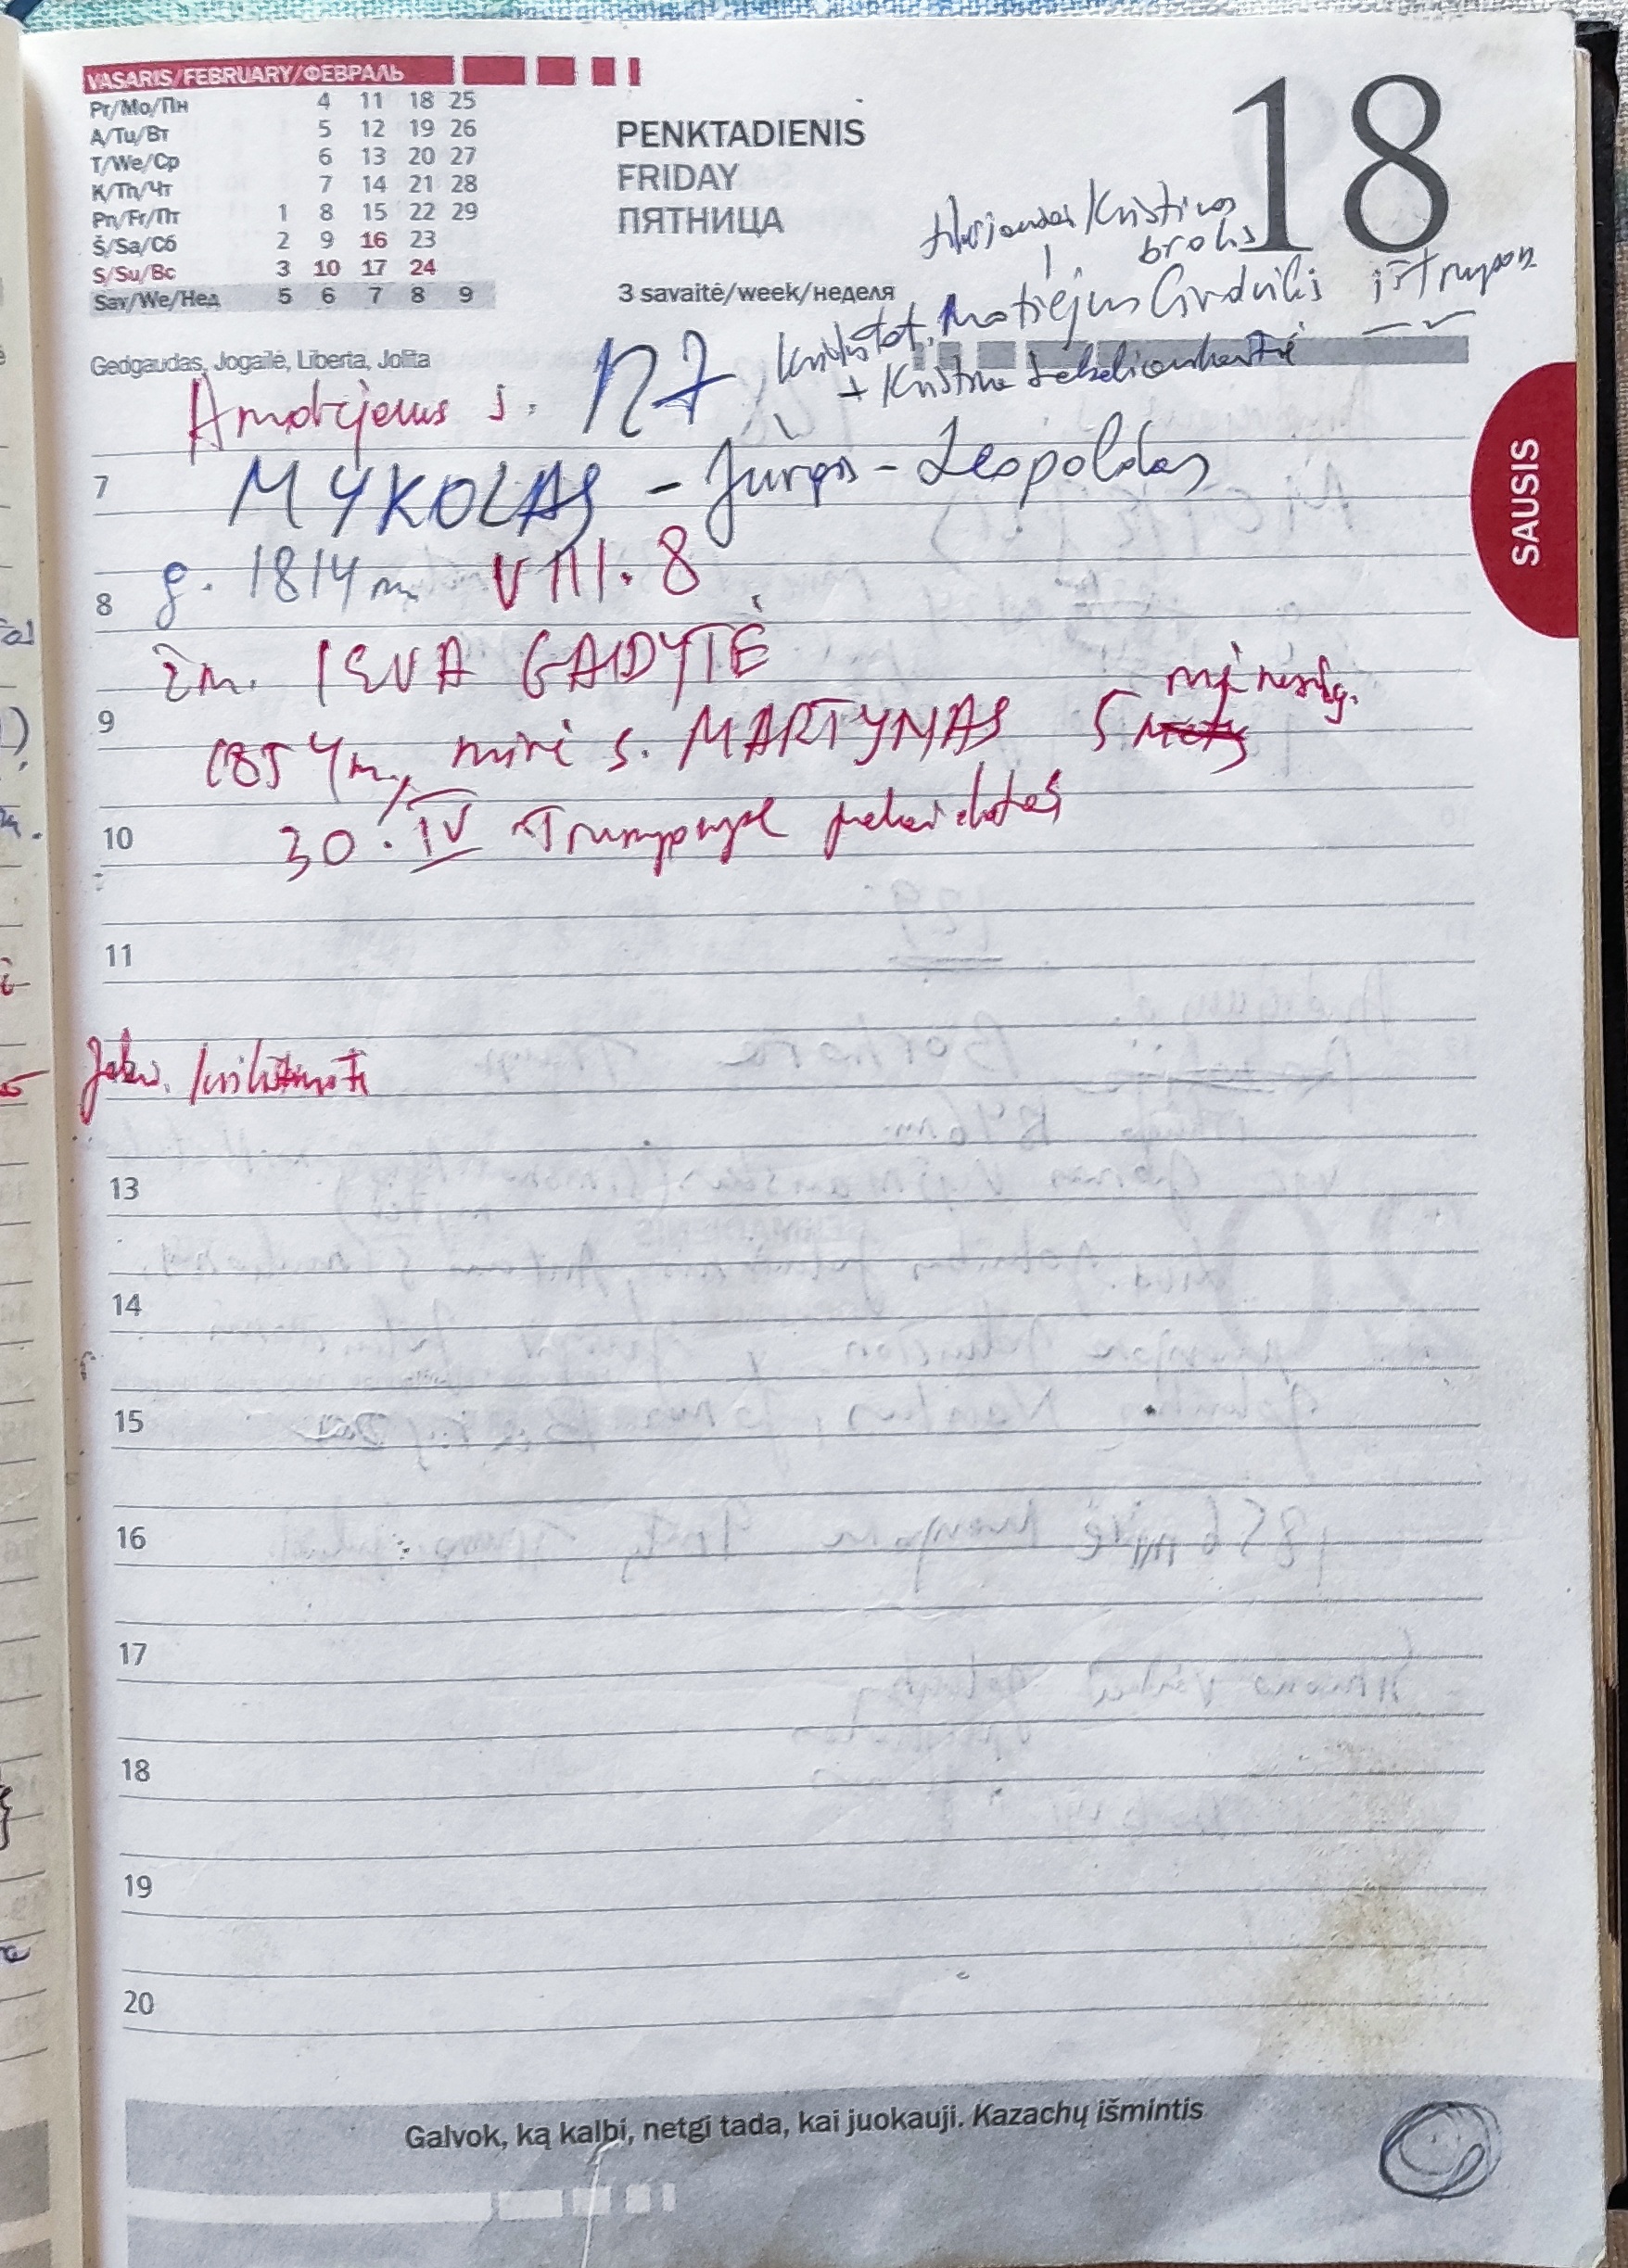 VASARIS/FEBRUARY/ФЕВРАЛЬ
Pr/Mo/Пн 4 11 18 25
A/Tu/Вт 5 12 19 26
T/We/Ср 6 13 20 27
K/Th/Чт 7 14 21 28
Pn/Fr/Пт 1 8 15 22 29
Š/Sa/Сб 2 9 16 23
S/Su/Вс 3 10 17 24
Sav/We/Нед 5 6 7 8 9
PENKTADIENIS
FRIDAY
ПЯТНИЦА
3 savaitė/week/неделя
18
Kristinos
brolis
Motiejus
+ Kristina
Gedgaudas, Jogailė, Liberta, Jolita
s. 127
7
MYKOLAS - Jurgis - Leopoldas
8
g. 1814 m. VIII. 8
žm. IEVA GADYTĖ
9
1854 m. mirė s. MARTYNAS 5
30. IV palaidotas
10
11
13
14
15
16
17
18
19
20
SAUSIS
Galvok, ką kalbi, netgi tada, kai juokauji. Kazachų išmintis